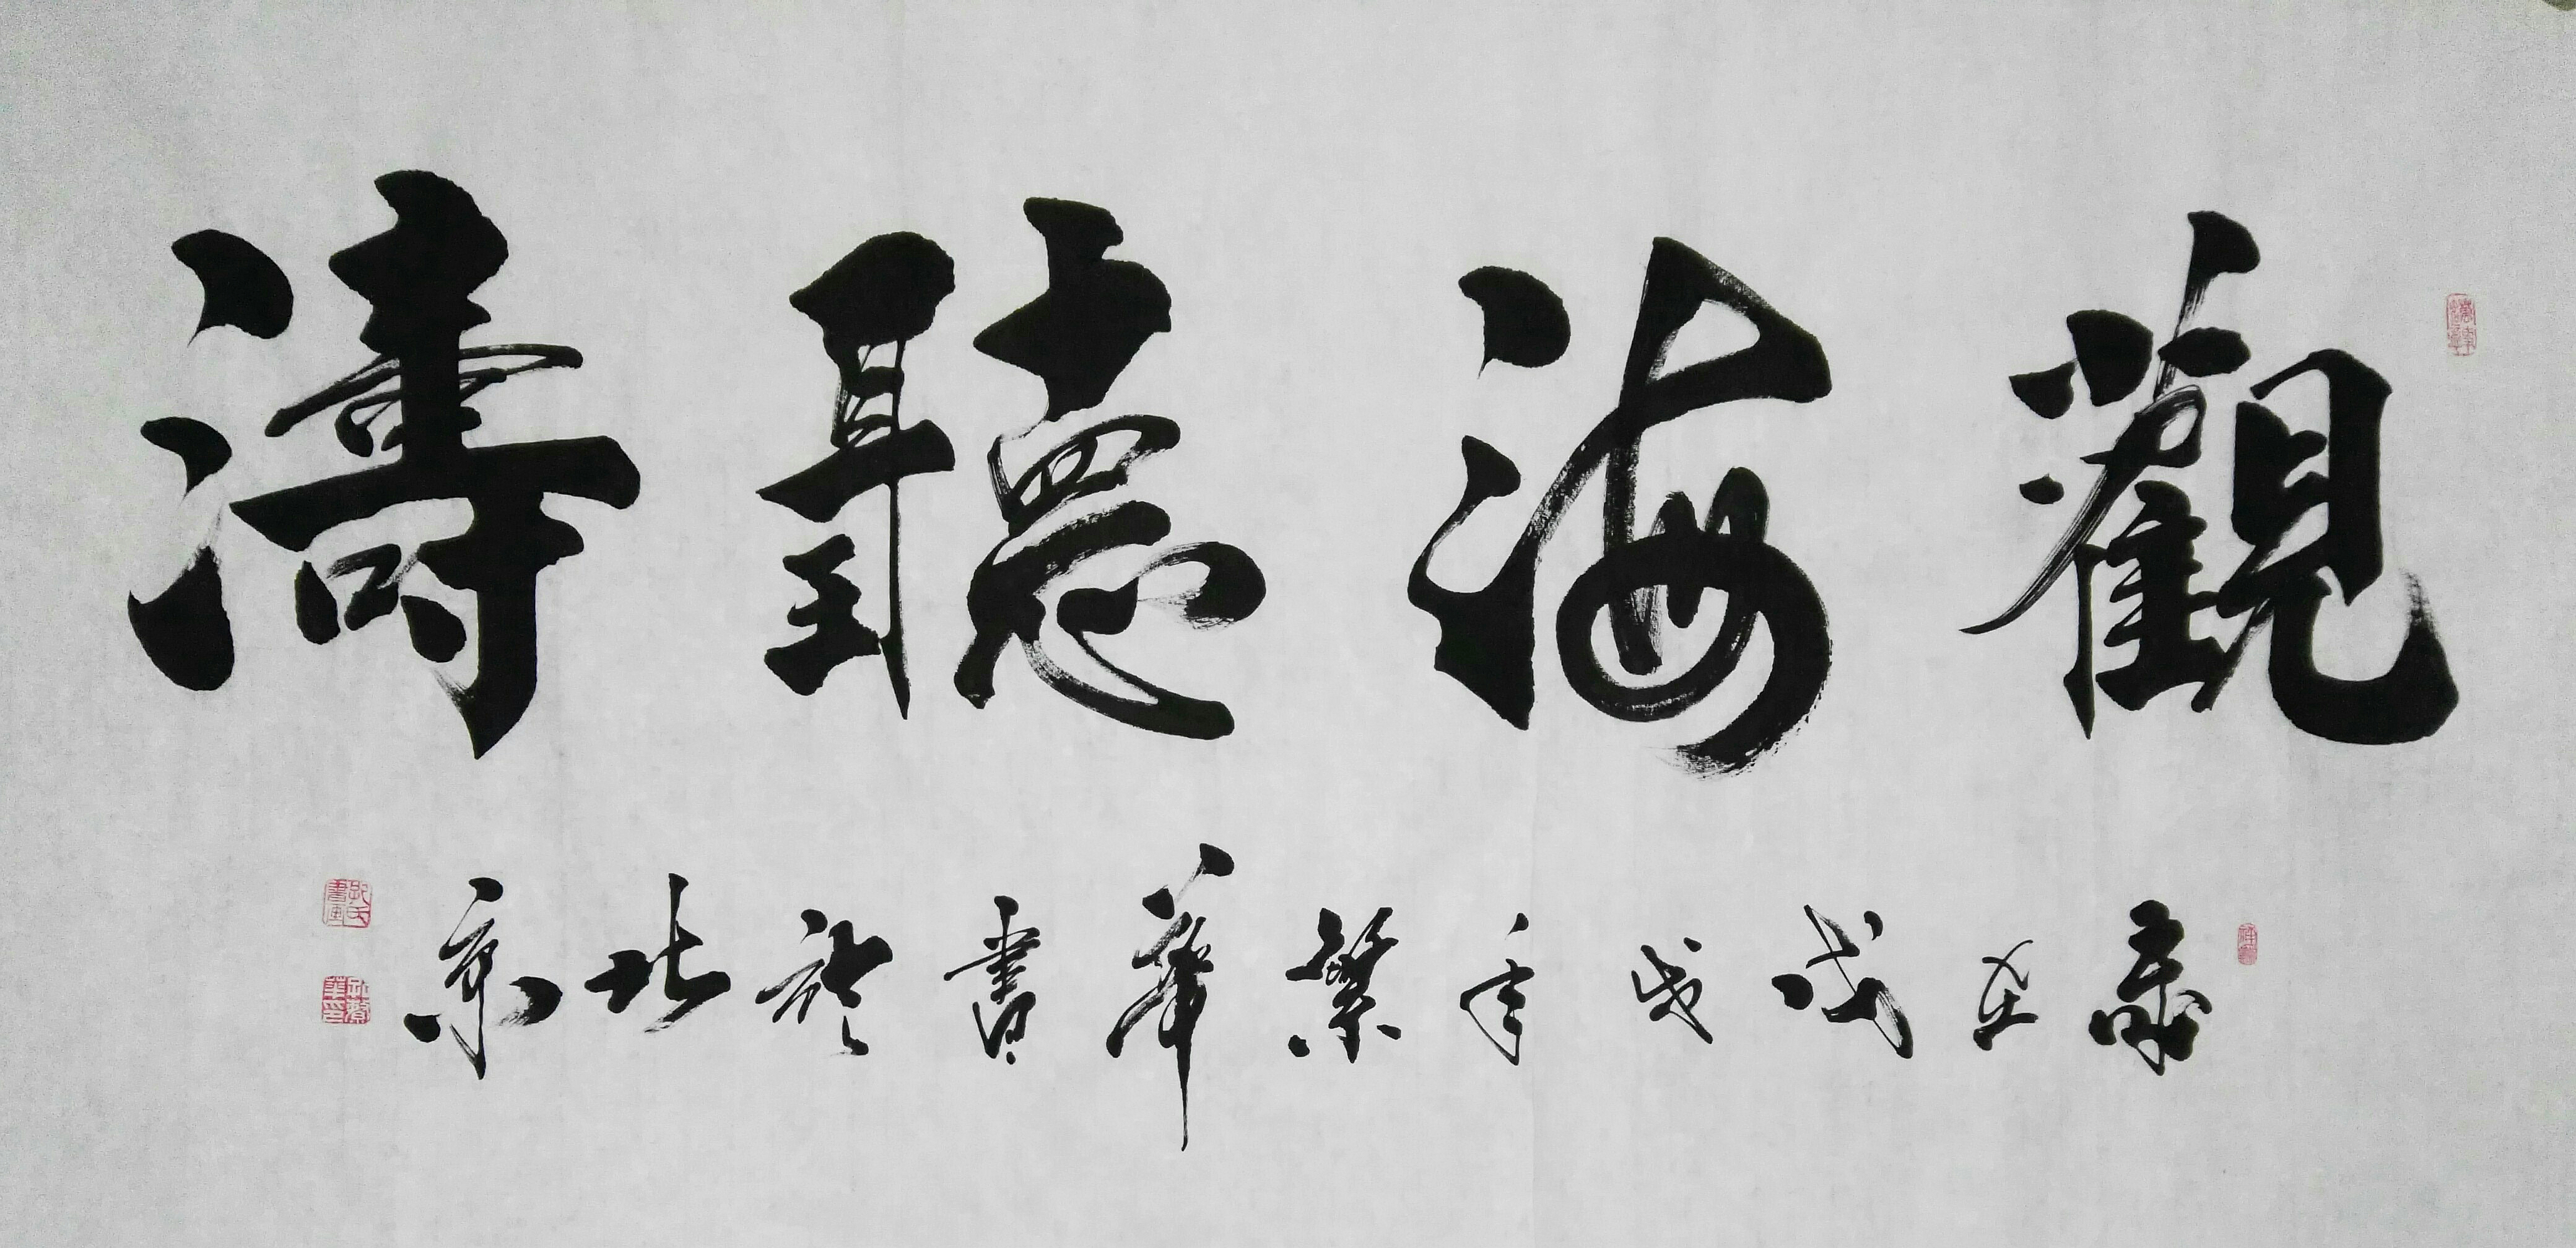 觀海聽濤
歲在戊戌年繁華書於北京